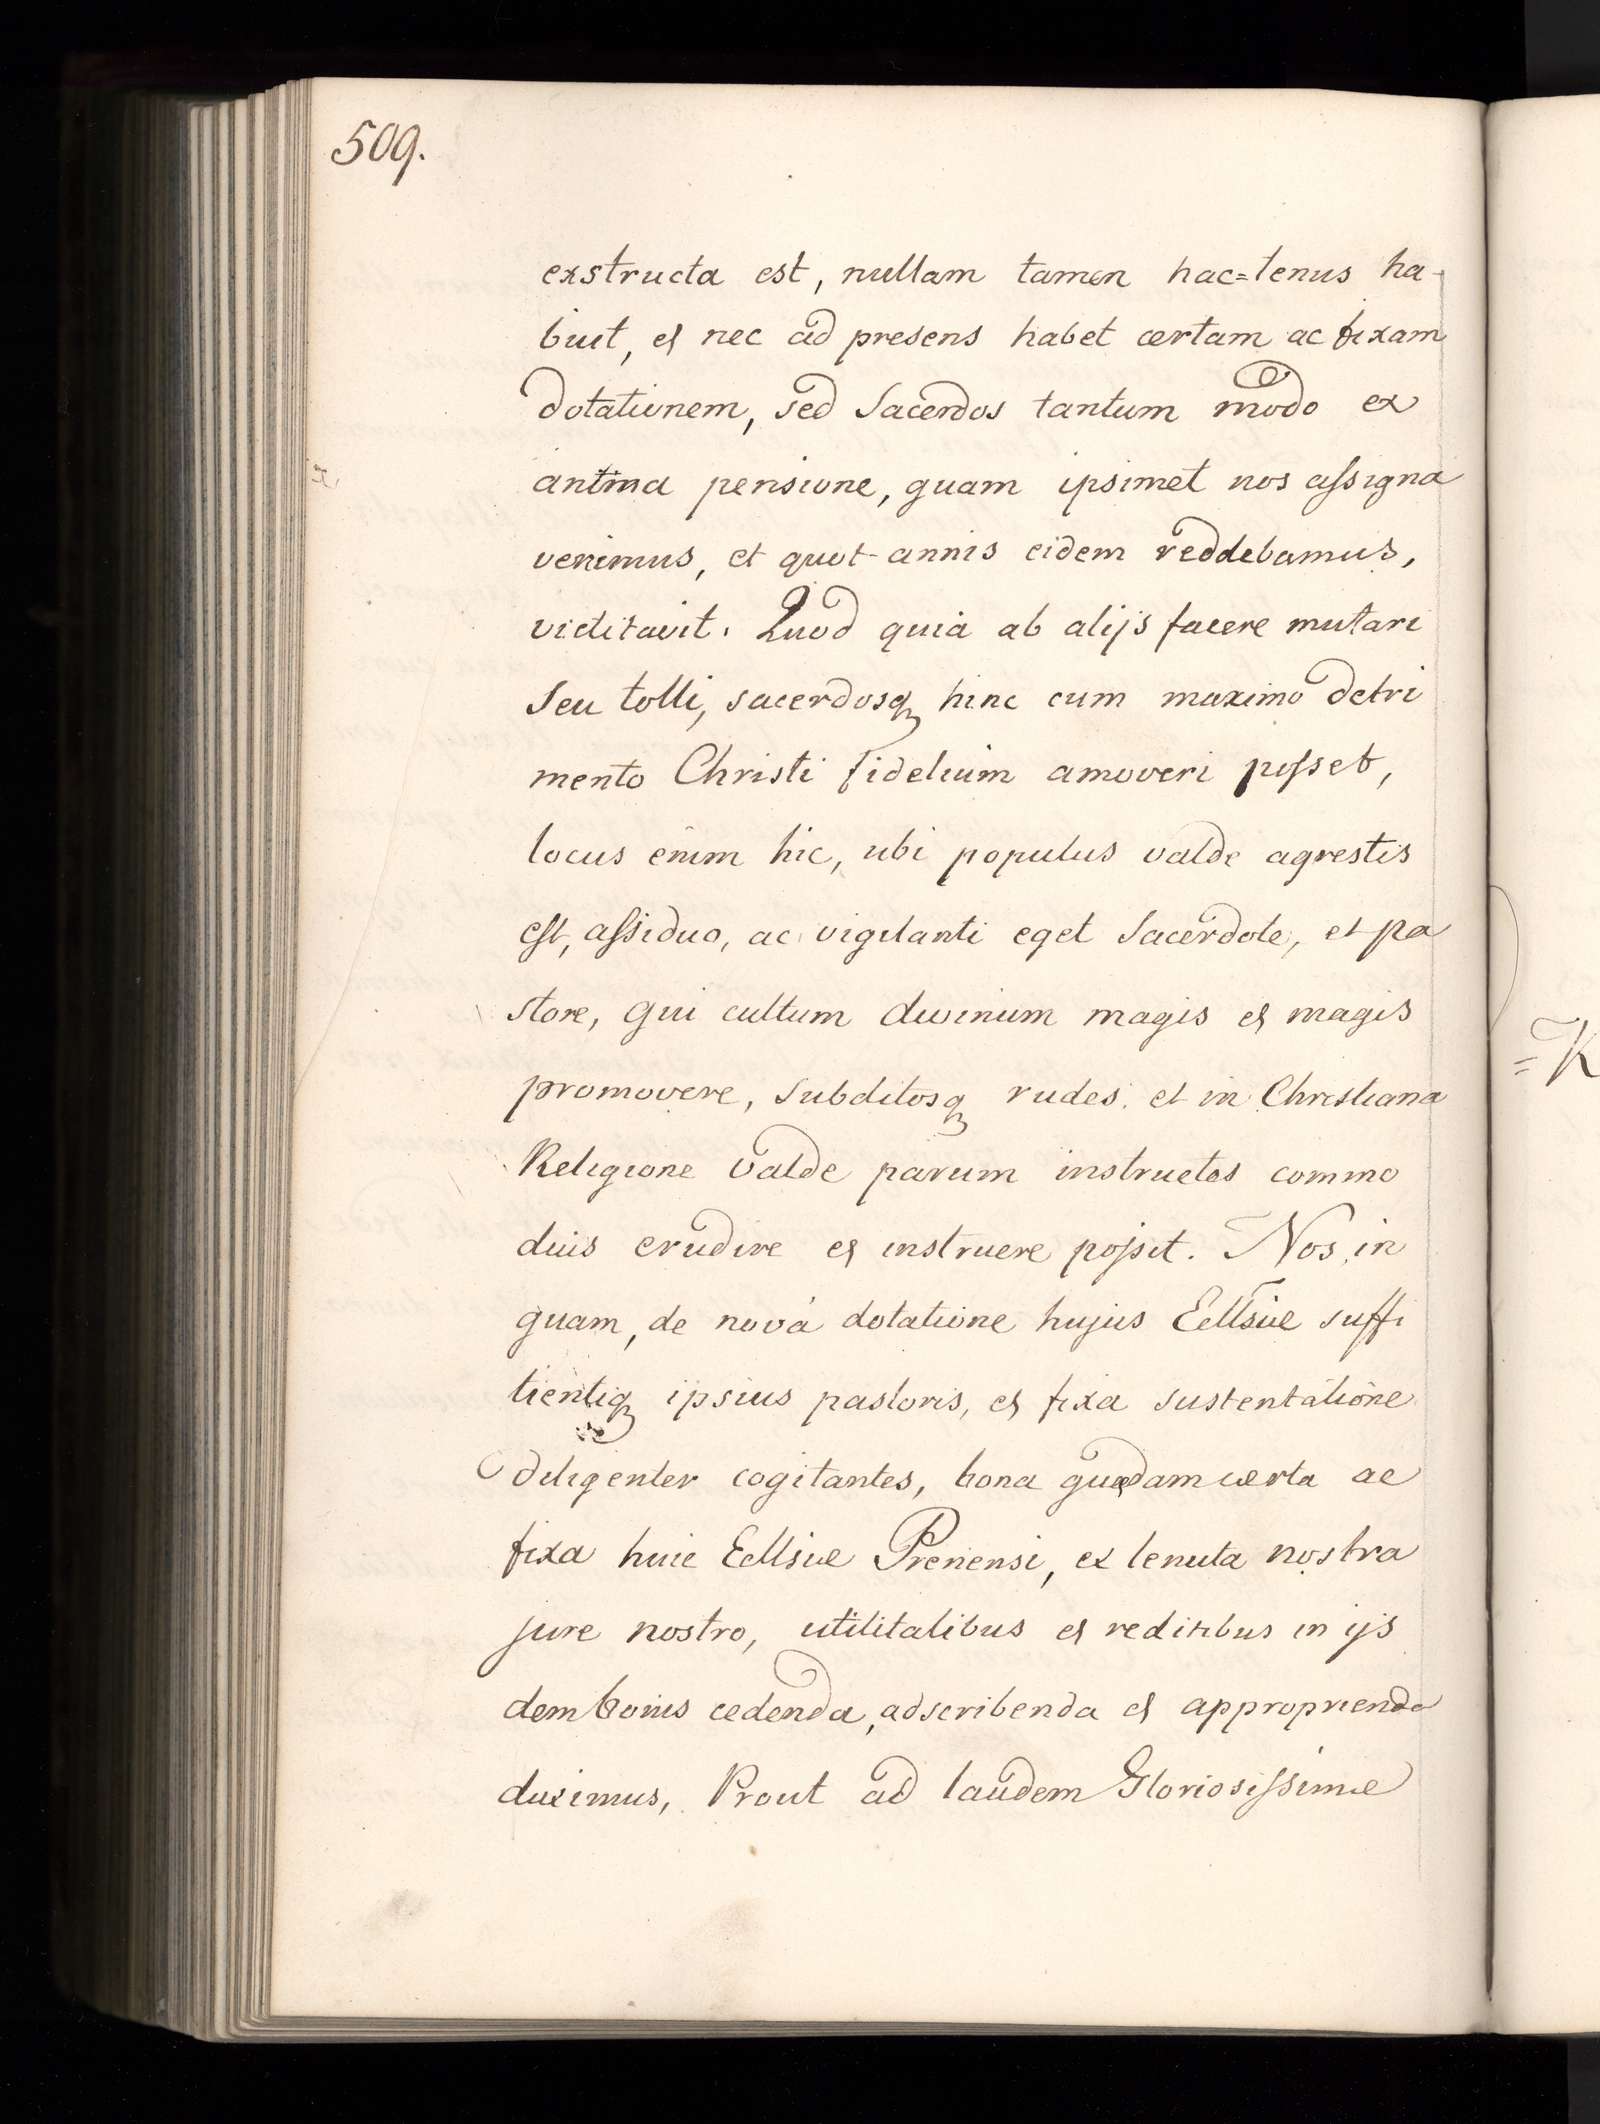 509.
exstructa est, nullam tamen hac=tenus ha-
buit, et nec ad presens habet certam ac fixam
dotationem, sed Sacerdos tantum modo ex
pensione, quam ipsimet nos assigna
verimus, et quot annis eidem reddebamus,
victitavit. Quod quia ab alijs facere mutari
Seu tolli, sacerdosq hinc cum maximo detri
mento Christi fidelium amoveri posset,
locus enim hic, ubi populus valde agrestis
est, assiduo, ac vigilanti eget Sacerdote, et pa
store, qui cultum divinum magis et magis
promovere, Subditosq rudes et in Christiana
Religione valde parum instructos commo
dius erudire et instruere possit. Nos in
quam, de novâ dotatione hujus Ecllsiæ suffi
tientiq ipsius pastoris, et fixa sustentatione
diligenter cogitantes, bona quædam certa ac
fixa huic Ecllsiæ Prenensi, ex tenuta nostra
jure nostro, utilitatibus et reditibus in ijs
dem bonis cedenda, adscribenda et approprienda
duximus, Prout ad laudem Gloriosissimæ
=K